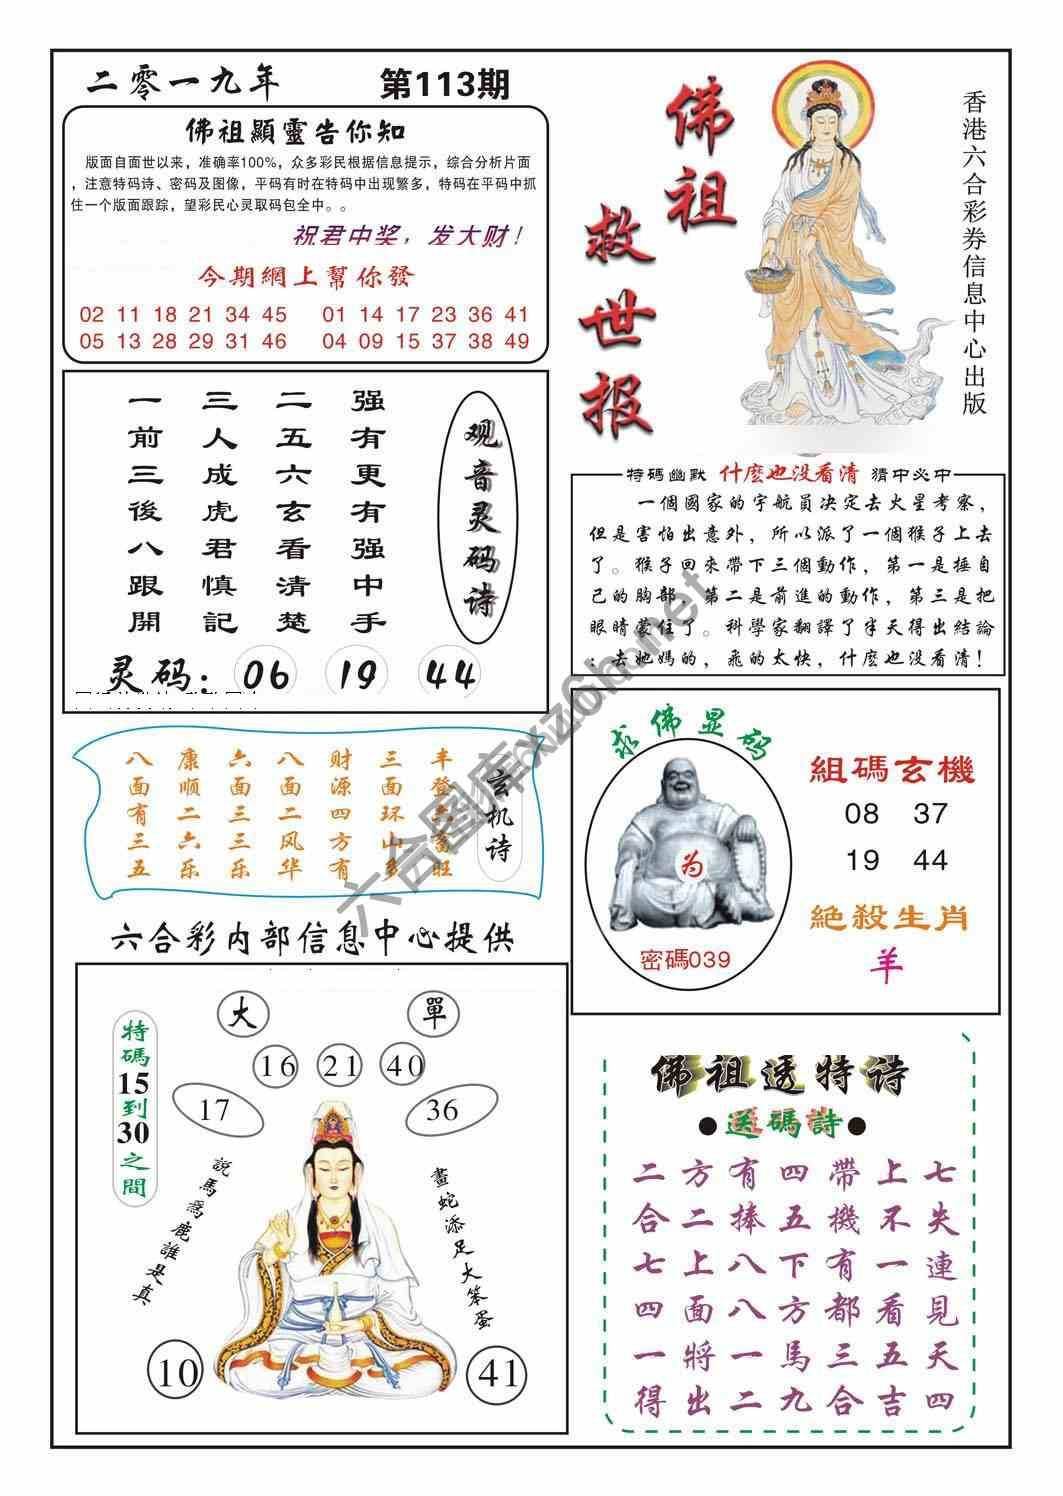 二零一九年
第113期
佛祖顯靈告你知
版面自面世以来，准确率100%，众多彩民根据信息提示，综合分析片面
，注意特码诗、密码及图像，平码有时在特码中出现繁多，特码在平码中抓
住一个版面跟踪，望彩民心灵取码包全中。。
祝君中奖，发大财！
今期網上幫你發
02 11 18 21 34 45 01 14 17 23 36 41
05 13 28 29 31 46 04 09 15 37 38 49
佛祖
救世报
香港六合彩券信息中心出版
一三二强
前人五有
三成六更
後虎玄有
八君看强
跟慎清中
開記楚手
观音灵码诗
灵码：06 19 44
特碼幽默 什麼也没看清 猜中必中
一個國家的宇航員决定去火星考察，
但是害怕出意外，所以派了一個猴子上去
了。猴子回來帶下三個動作，第一是捶自
己的胸部，第二是前進的動作，第三是把
眼睛蒙住了。科學家翻譯了半天得出結論
：去她媽的，飛的太快，什麼也没看清！
八康六八财三丰
面顺面面源面登
有二三二四环六
三六三风方山畜
五乐乐华有多旺
玄机诗
求佛显码
为
密碼039
組碼玄機
08 37
19 44
絕殺生肖
羊
六合彩内部信息中心提供
特碼15到30之間
大
單
16 21 40
17
36
説馬爲鹿誰是真
畫蛇添足大笨蛋
10
41
佛祖透特诗
●送碼詩●
二方有四帶上七
合二捧五機不失
七上八下有一連
四面八方都看見
一將一馬三五天
得出二九合吉四
六合图库xz6hh.net